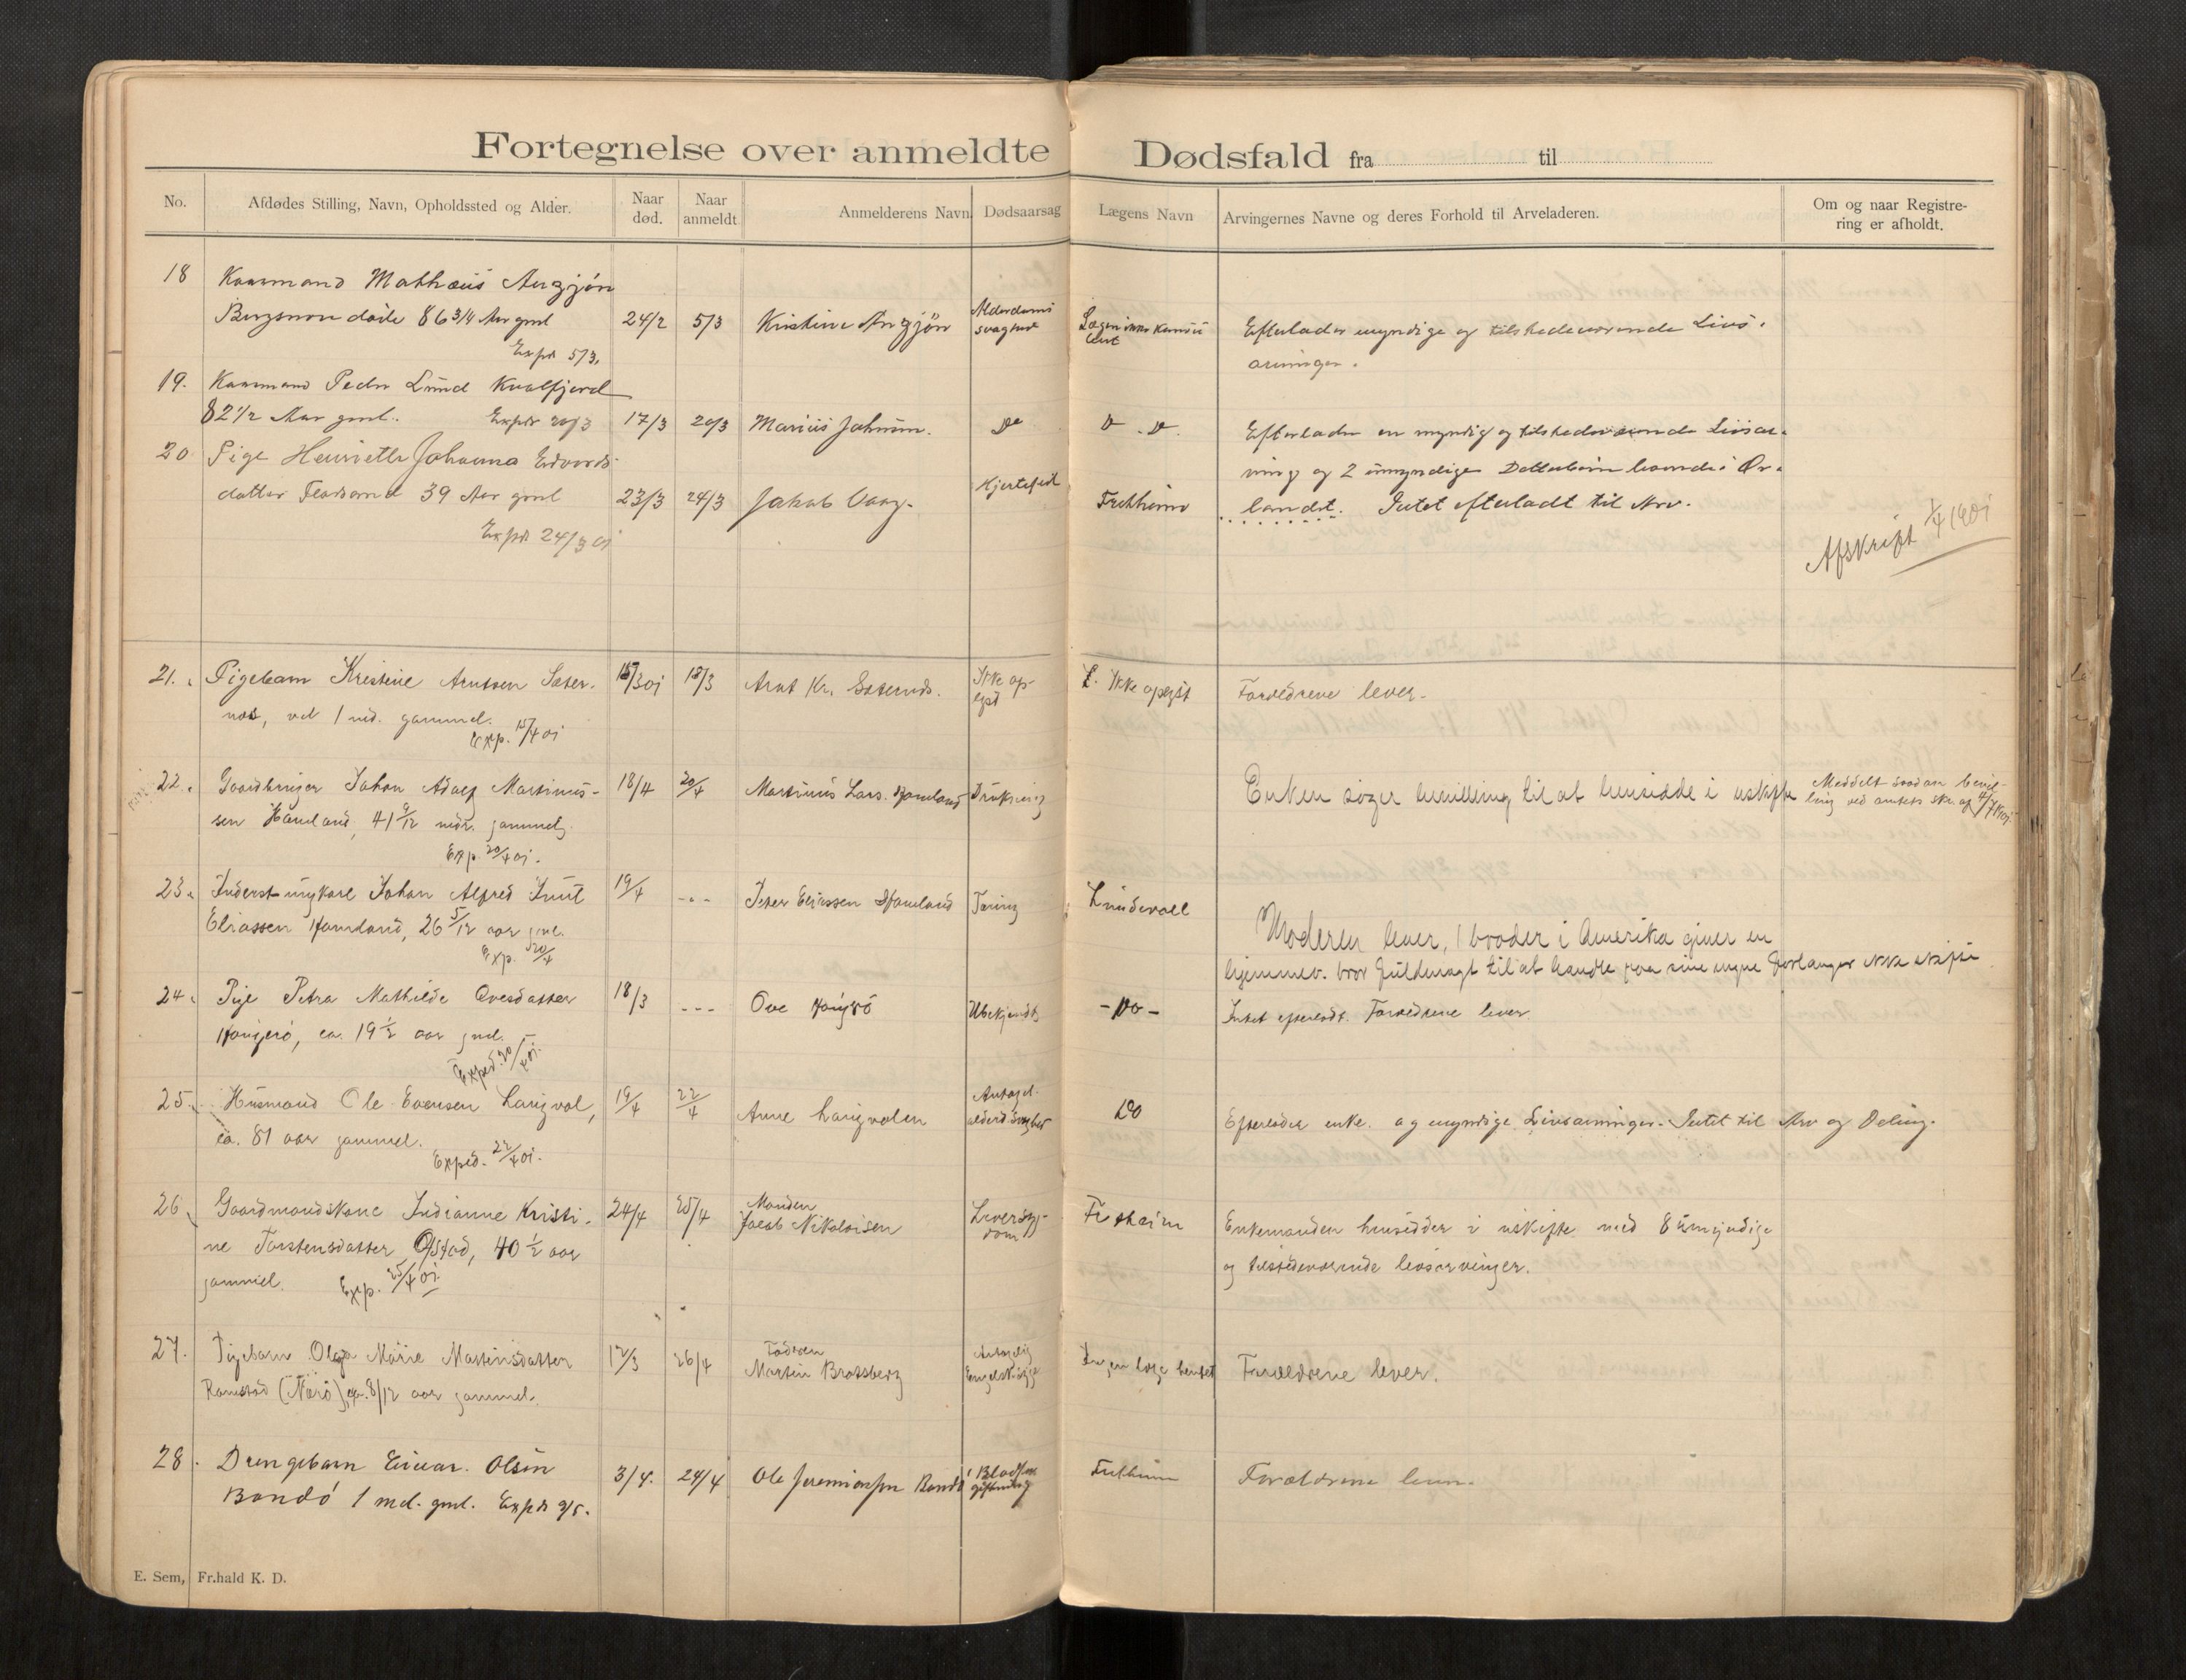 Fortegnelse over anmeldte Dødsfald fra til
No. Afdødes Stilling, Navn, Opholdssted og Alder. Naar død. Naar anmeldt Anmelderens Navn Dødsaarsag Lægens Navn Arvingernes Navne og deres Forhold til Arveladeren. Om og naar Registrering er afholdt.
18 Kaarmand Mathæus
86 3/4 Aar gml 24/2 5/3 Kristine Alderdoms svaghed Efterlader myndige og tilstedeværende Livs-
Expd 5/3. arvinger.
19. Kaarmand Peder Lund Kvalfjord
82 1/2 Aar gml. Expd 20/3 17/3 20/3 Marius Johnsen. Do D D. Efterlader en myndig og tilstedeværende Livsar-
20 Pige Henriette Johanna Edvards- ving og 2 umyndige Datterbørn boende i Ør-
datter 39 Aar gml 23/3 24/3 Jakob Vaag. Hjertefeil Fritheim landet. Intet efterladt til Arv.
Expd 24/3 01
Afskrift 1/4 1901
21. Pigebarn Kristine Arntsen Sæter- 3 01 18/3 Arnt Kr. Sæternæs. Ikke op- lyst L. Ikke oplyst Forældrene lever.
næs, vel 1 md. gammel.
Exp. 15/4 01
22. Gaardbruger Johan Adolf Martinus- 18/4 20/4 Martinus Lars. Hamland Drukning Enken søger bevilling til at hensidde i uskifte Meddelt saadan bevil- ling ved amtets skr. af 4/7 1901
sen Hamland, 41 9/12 gammel.
Exp. 20/4 01.
23. Inderst ungkarl Johan Alfred Knut 19/4 - - - Peter Eliassen Hamland Tæring Lindvall
Eliassen Hamland, 26 5/12 aar gml. Moderen lever, 1 broder i Amerika giver en
Exp. 20/4 hjemmev. bror fuldmagt til at handle paa sine vegne forlanger ikke skifte
24. Pige Petra Mathilde Ovesdatter 18/3 - - - Ove Ubekjendt - Do - Intet efterladt. Forældrene lever.
ca. 19 1/2 aar gml.
Exped. 20/4 01.
25. Husmand Ole Evensen Langvol, 19/4 22/4 Anne Langvolen Antagel. Do Efterlader enke og myndige Livsarvinger. Intet til Arv og Deling.
ca. 81 aar gammel.
Exped. 22/4 01.
26. Gaardmandskone Indianne Kristi- 24/4 25/4 Manden Jacob Nikolaisen Leversyg- dom Fritheim Enkemanden hensidder i uskifte med 8 umyndige
ne Torstensdatter Ofstad, 40 1/2 aar og tilstedeværende livsarvinger.
gammel. Exp. 25/4 01.
27. Pigebarn Olga Marie Martinsdatter 12/3 26/4 Faderen Martin Bratsberg Antagelig Engelsksyge Ingen læge hentet Forældrene lever.
Ramstad (Nærø), ca. 8/12 aar gammel.
28. Drengebarn Einar Olsen 3/4. 24/4 Ole Jeremiassen Bondø Blodfor- giftning Fritheim Forældrene lever.
Bondø 1 md. gml. Expd 9/5.
E. Sem, Fr.hald K. D.